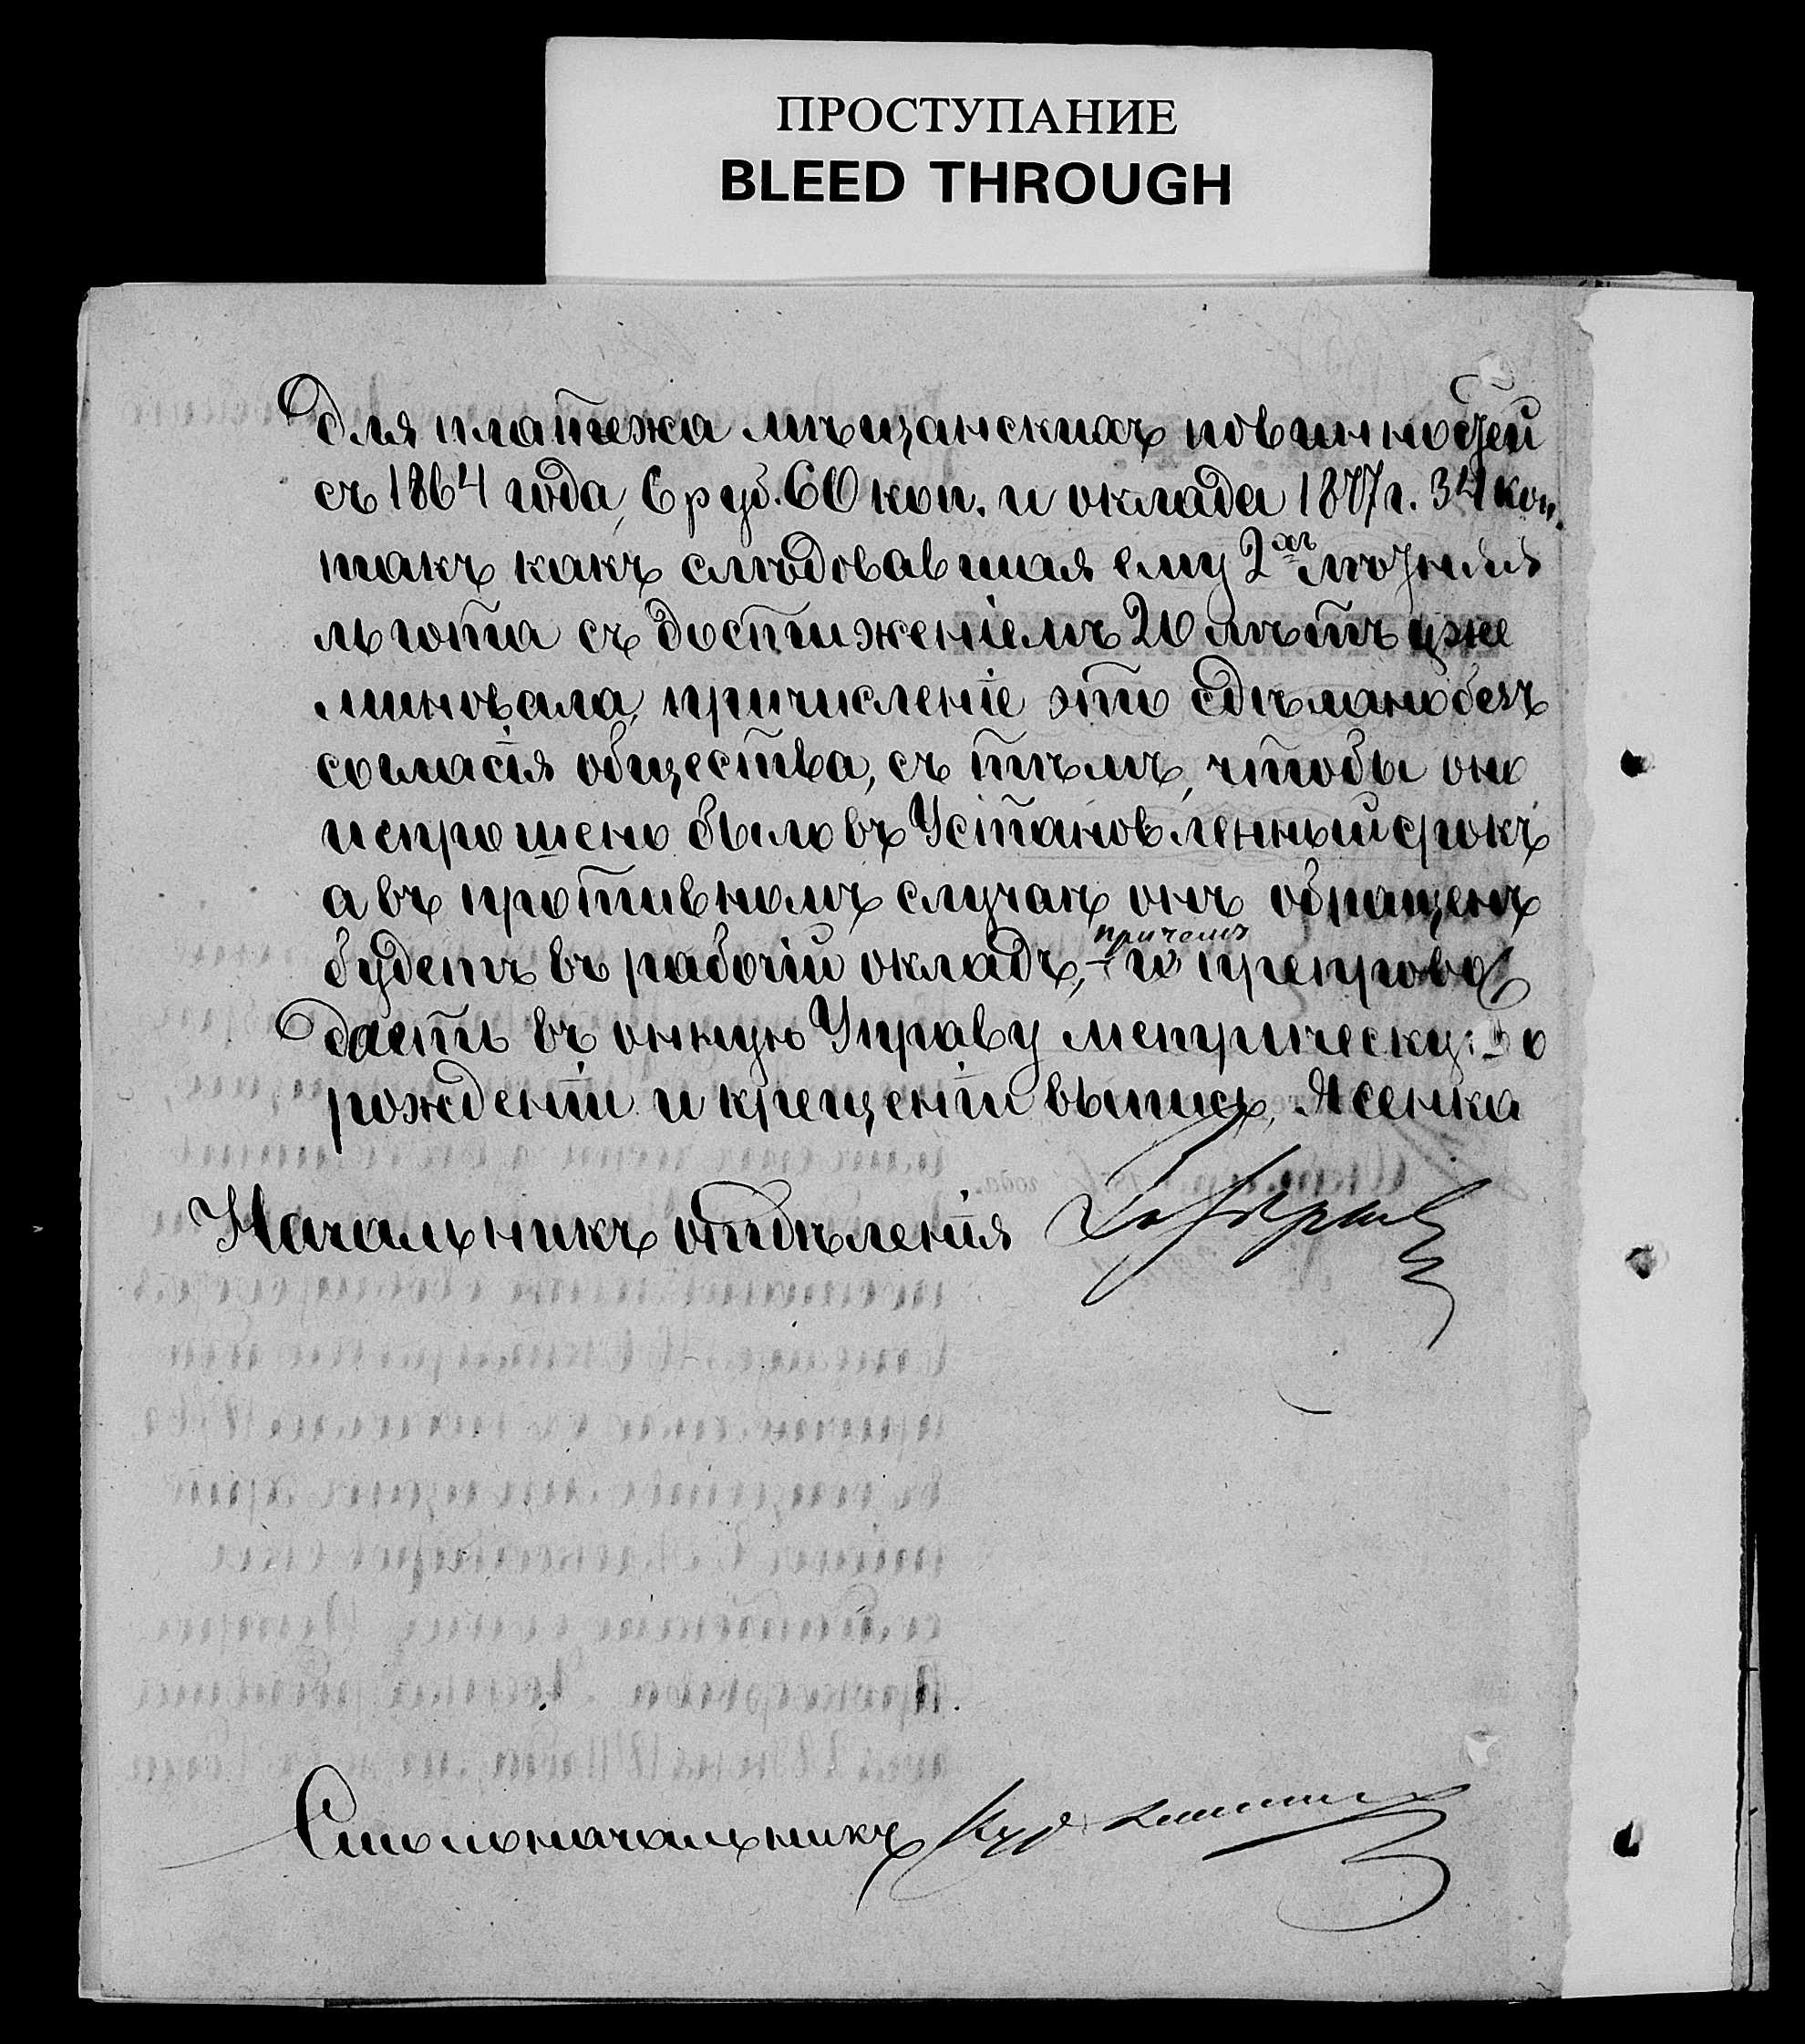 ПРОСТУПАНИЕ
BLEED THROUGH
для платежа мѣщанскихъ повинностей
съ 1864 года, 6 руб. 60 коп. и оклада 1877 г. 34 коп.
такъ какъ слѣдовавшая ему 2хъ лѣтняя
льгота съ достиженіемъ 20 лѣтъ уже
миновала, причисленіе это сдѣлано безъ
согласія общества, съ тѣмъ, чтобы оно
испрошено было въ Установленный срокъ
а въ противномъ случаѣ онъ обращенъ
будетъ въ рабочій окладъ, причемъ и препрово
дается въ онную Управу метрическую о
рожденіи и крещеніи выпись, Ясенка
Начальникъ отдѣленія
Столоначальникъ